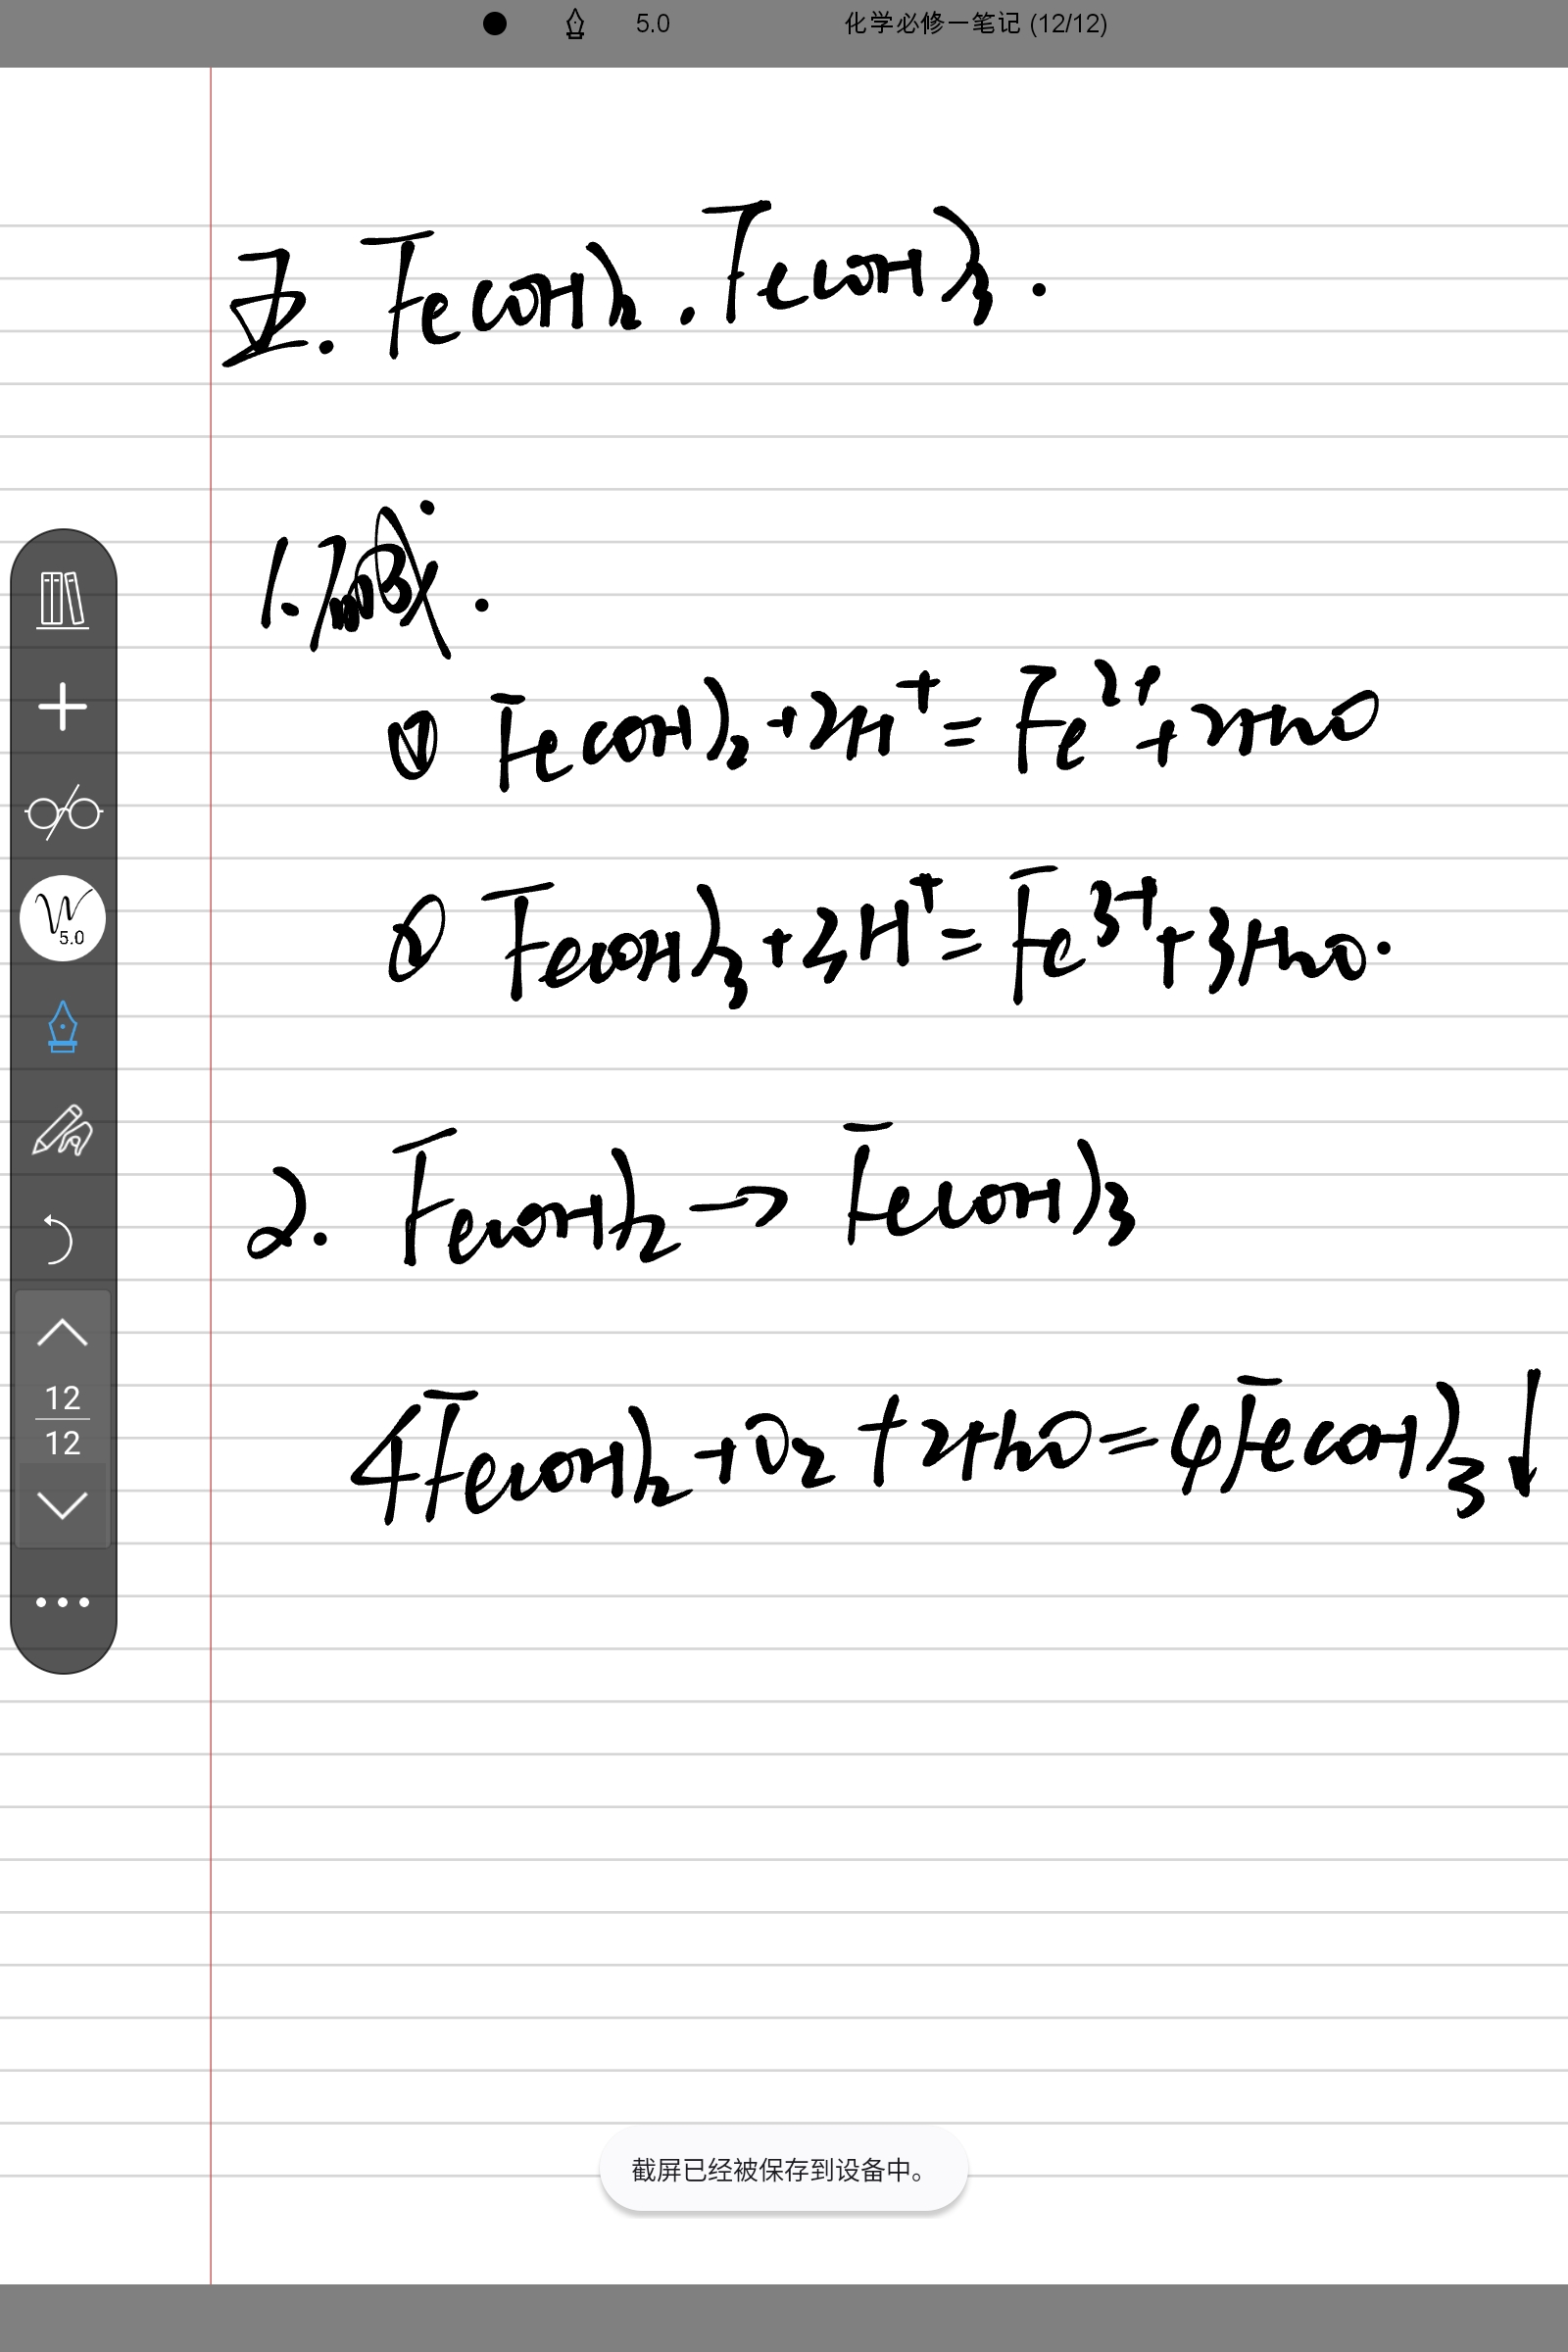 5.0 化学必修一笔记 (12/12)
五. Fe(OH)₂. Fe(OH)₃.
1. 碱.
① Fe(OH)₂+2H⁺=Fe²⁺+2H₂O
② Fe(OH)₃+3H⁺=Fe³⁺+3H₂O.
2. Fe(OH)₂→Fe(OH)₃
4Fe(OH)₂+O₂+2H₂O=4Fe(OH)₃↓
5.0
12
12
截屏已经被保存到设备中。